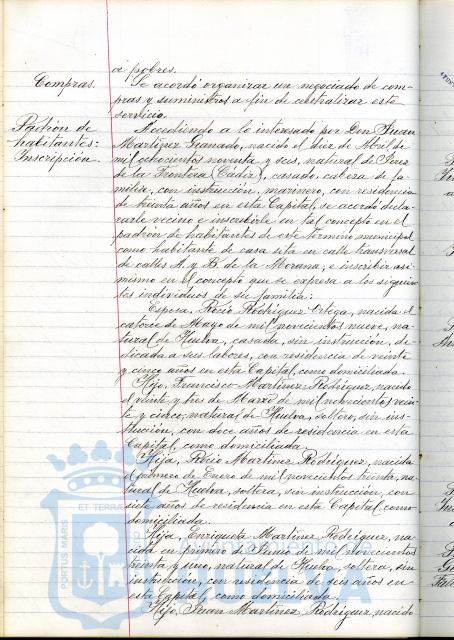 a pobres.
Compras.
Se acordó organizar un negociado de com-
pras y suministros a fin de centralizar este
servicio.
Padrón de
habitantes:
Inscripción.
Accediendo a lo interesado por Don Juan
Martínez Granado, nacido el diez de Abril de
mil ochocientos noventa y seis, natural de Jerez
de la Frontera (Cádiz), casado, cabeza de fa-
milia, con instrucción, marinero, con residencia
de treinta años en esta Capital, se acordó decla-
rarle vecino e inscribirle en tal concepto en el
padrón de habitantes de este término municipal
como habitante de casa sita en calle transversal
de calles A. y B. de la Morana, e inscribir asi-
mismo en el concepto que se expresa a los siguien-
tes individuos de su familia:
Esposa, Rocío Rodríguez Ortega, nacida el
catorce de Mayo de mil novecientos nueve, na-
tural de Huelva, casada, sin instrucción, de-
dicada a sus labores, con residencia de veinte
y cinco años en esta Capital, como domiciliada.
Hijo, Francisco Martínez Rodríguez, nacido
el veinte y tres de Marzo de mil novecientos vein-
te y cinco, natural de Huelva, soltero, sin ins-
trucción, con doce años de residencia en esta
Capital, como domiciliada.
Hija, Rocío Martínez Rodríguez, nacida
el primero de Enero de mil novecientos treinta, na-
tural de Huelva, soltera, sin instrucción, con
siete años de residencia en esta Capital, como
domiciliada.
Hija, Enriqueta Martínez Rodríguez, na-
cida en primero de Junio de mil novecientos
treinta y uno, natural de Huelva, soltera, sin
instrucción, con residencia de seis años en
esta Capital, como domiciliada.
Hijo, Juan Martínez Rodríguez, nacido
PORTUS MARIS
ET TERRA